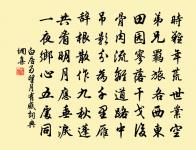 時難年荒世業空
弟兄羈旅各西東
田園寥落干戈後
骨肉流離道路中
吊影分為千里雁
辭根散作九秋蓬
共看明月應垂淚
一夜鄉心五處同
白居易望月有感詞典
網集